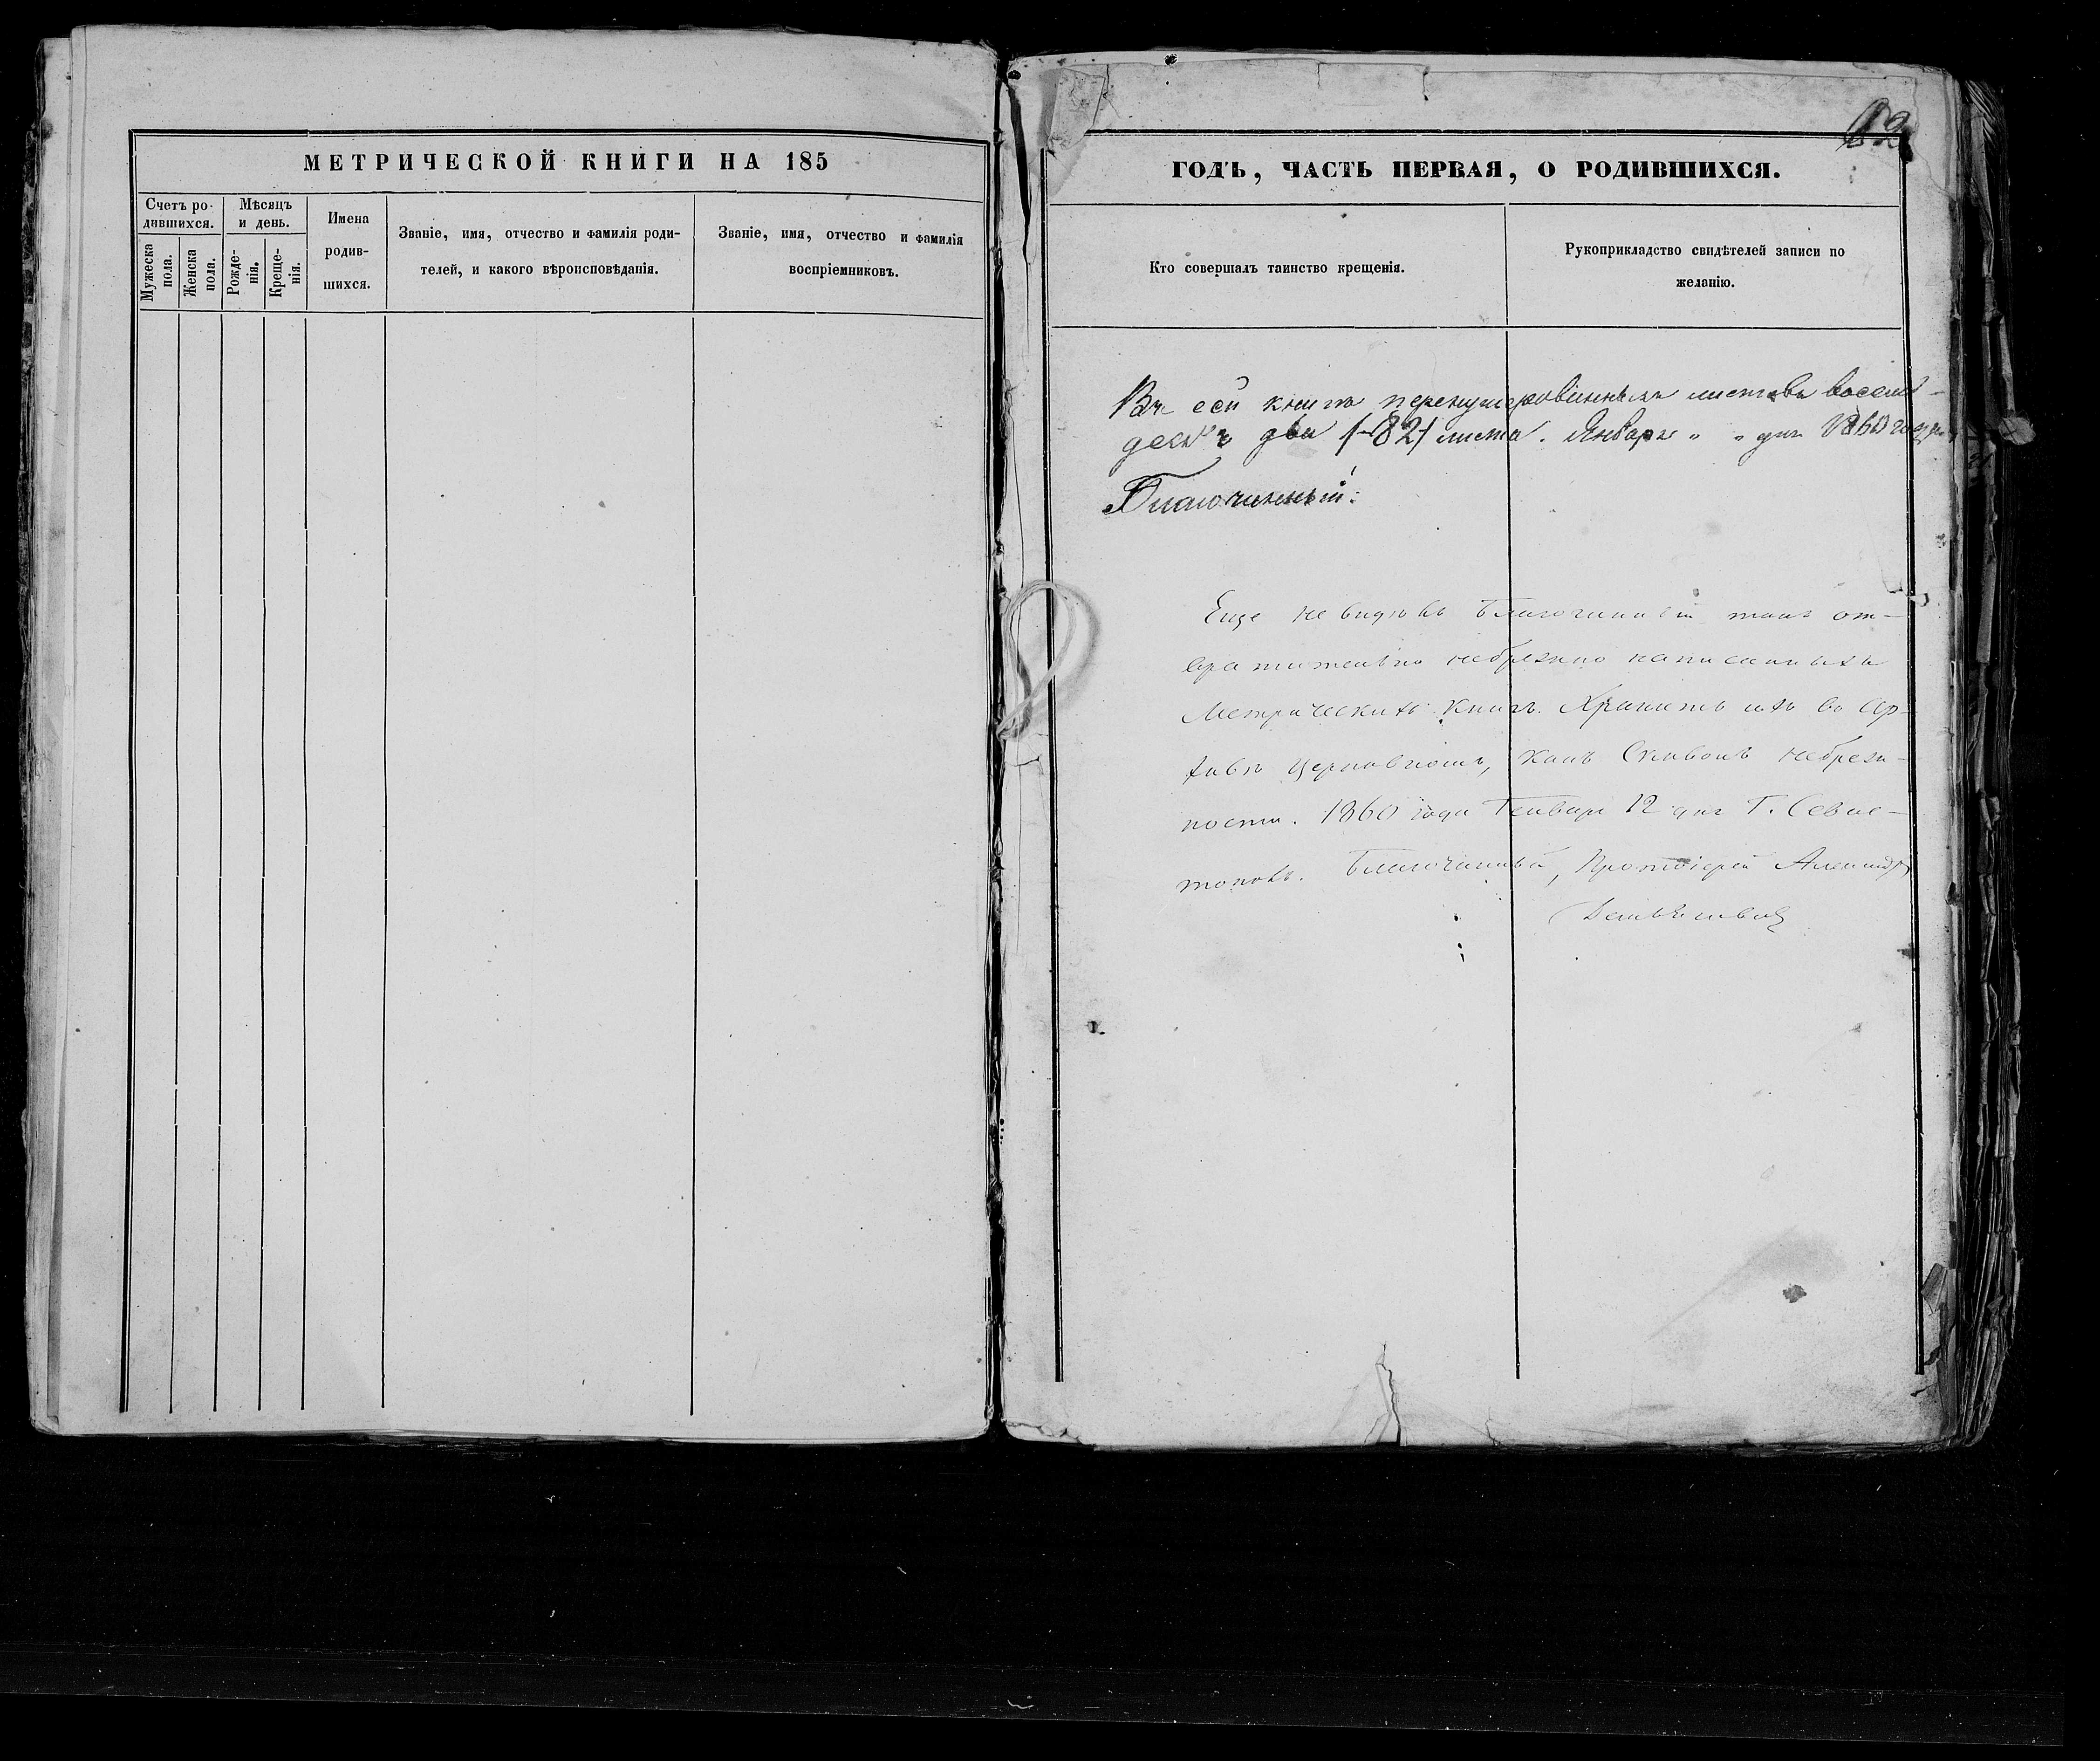 МЕТРИЧЕСКОЙ КНИГИ НА 185
Счетъ ро-
дившихся.
Мужеска
пола.
Женска
пола.
Мѣсяцъ
и день.
Рожде-
нія.
Креще-
нія.
Имена
родив-
шихся.
Званіе, имя, отчество и фамилія роди-
телей, и какого вѣроисповѣданія.
Званіе, имя, отчество и фамилія
воспріемниковъ.
82
ГОДЪ, ЧАСТЬ ПЕРВАЯ, О РОДИВШИХСЯ.
Кто совершалъ таинство крещенія.
Рукоприкладство свидѣтелей записи по
желанію.
Въ сей книгѣ перенумерованныхъ листовъ восемь-
десятъ два /-82/ листа. Января " " дня 1860 года
Благочинный:
Еще не видѣлъ Благочинный такъ от-
вратительно небрежно написанныхъ
Метрическихъ книгъ. Хранить ихъ въ Ар-
хивѣ Церковномъ, какъ небреж-
ности. 1860 года Генваря 12 дня Г. Севас-
тополь. Благочинный, Протоіерей Александръ